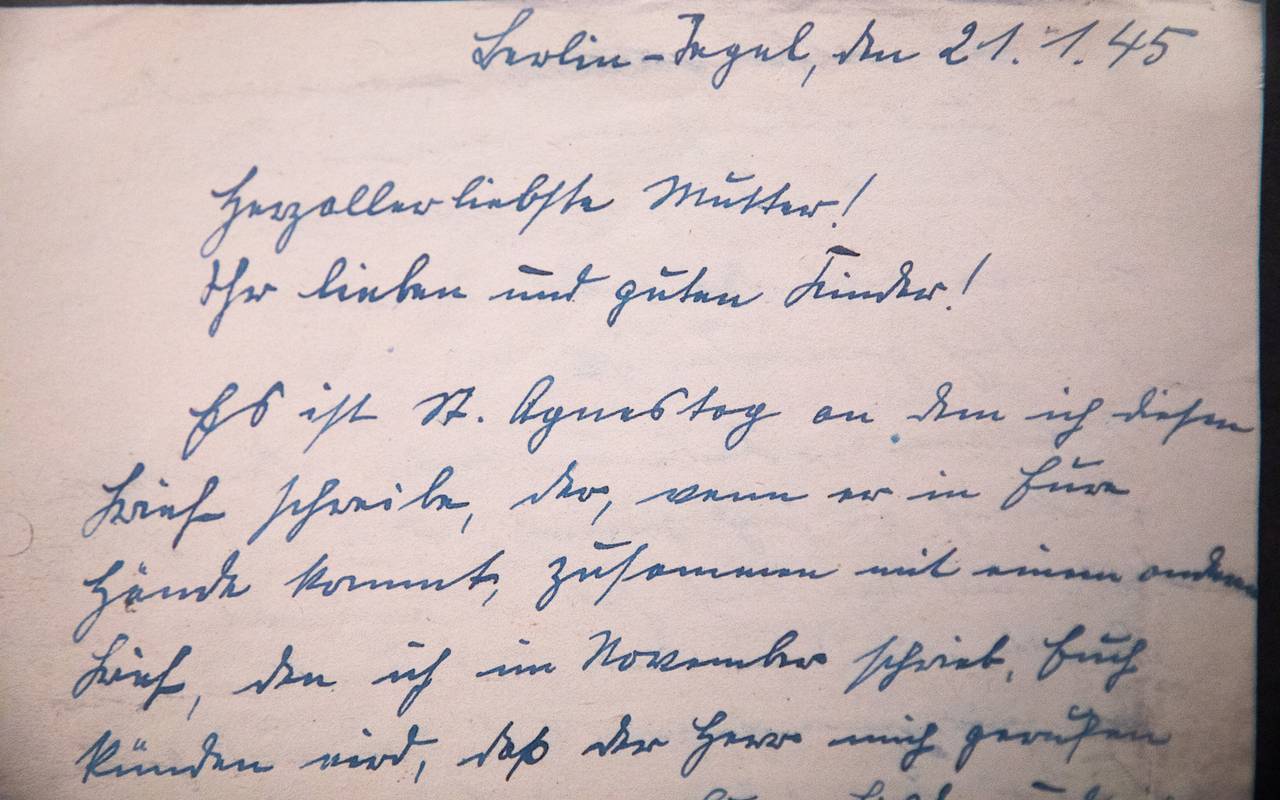 Berlin-Tegel, den 21. 1. 45
Herzallerliebste Mutter!
Ihr lieben und guten Kinder!
Es ist St. Agnestag an dem ich diesen
Brief schreibe, der, wenn er in Eure
Hände kommt, zusammen mit einem andern
Brief, den ich im November schrieb, Euch
künden wird, daß der Herr mich gerufen